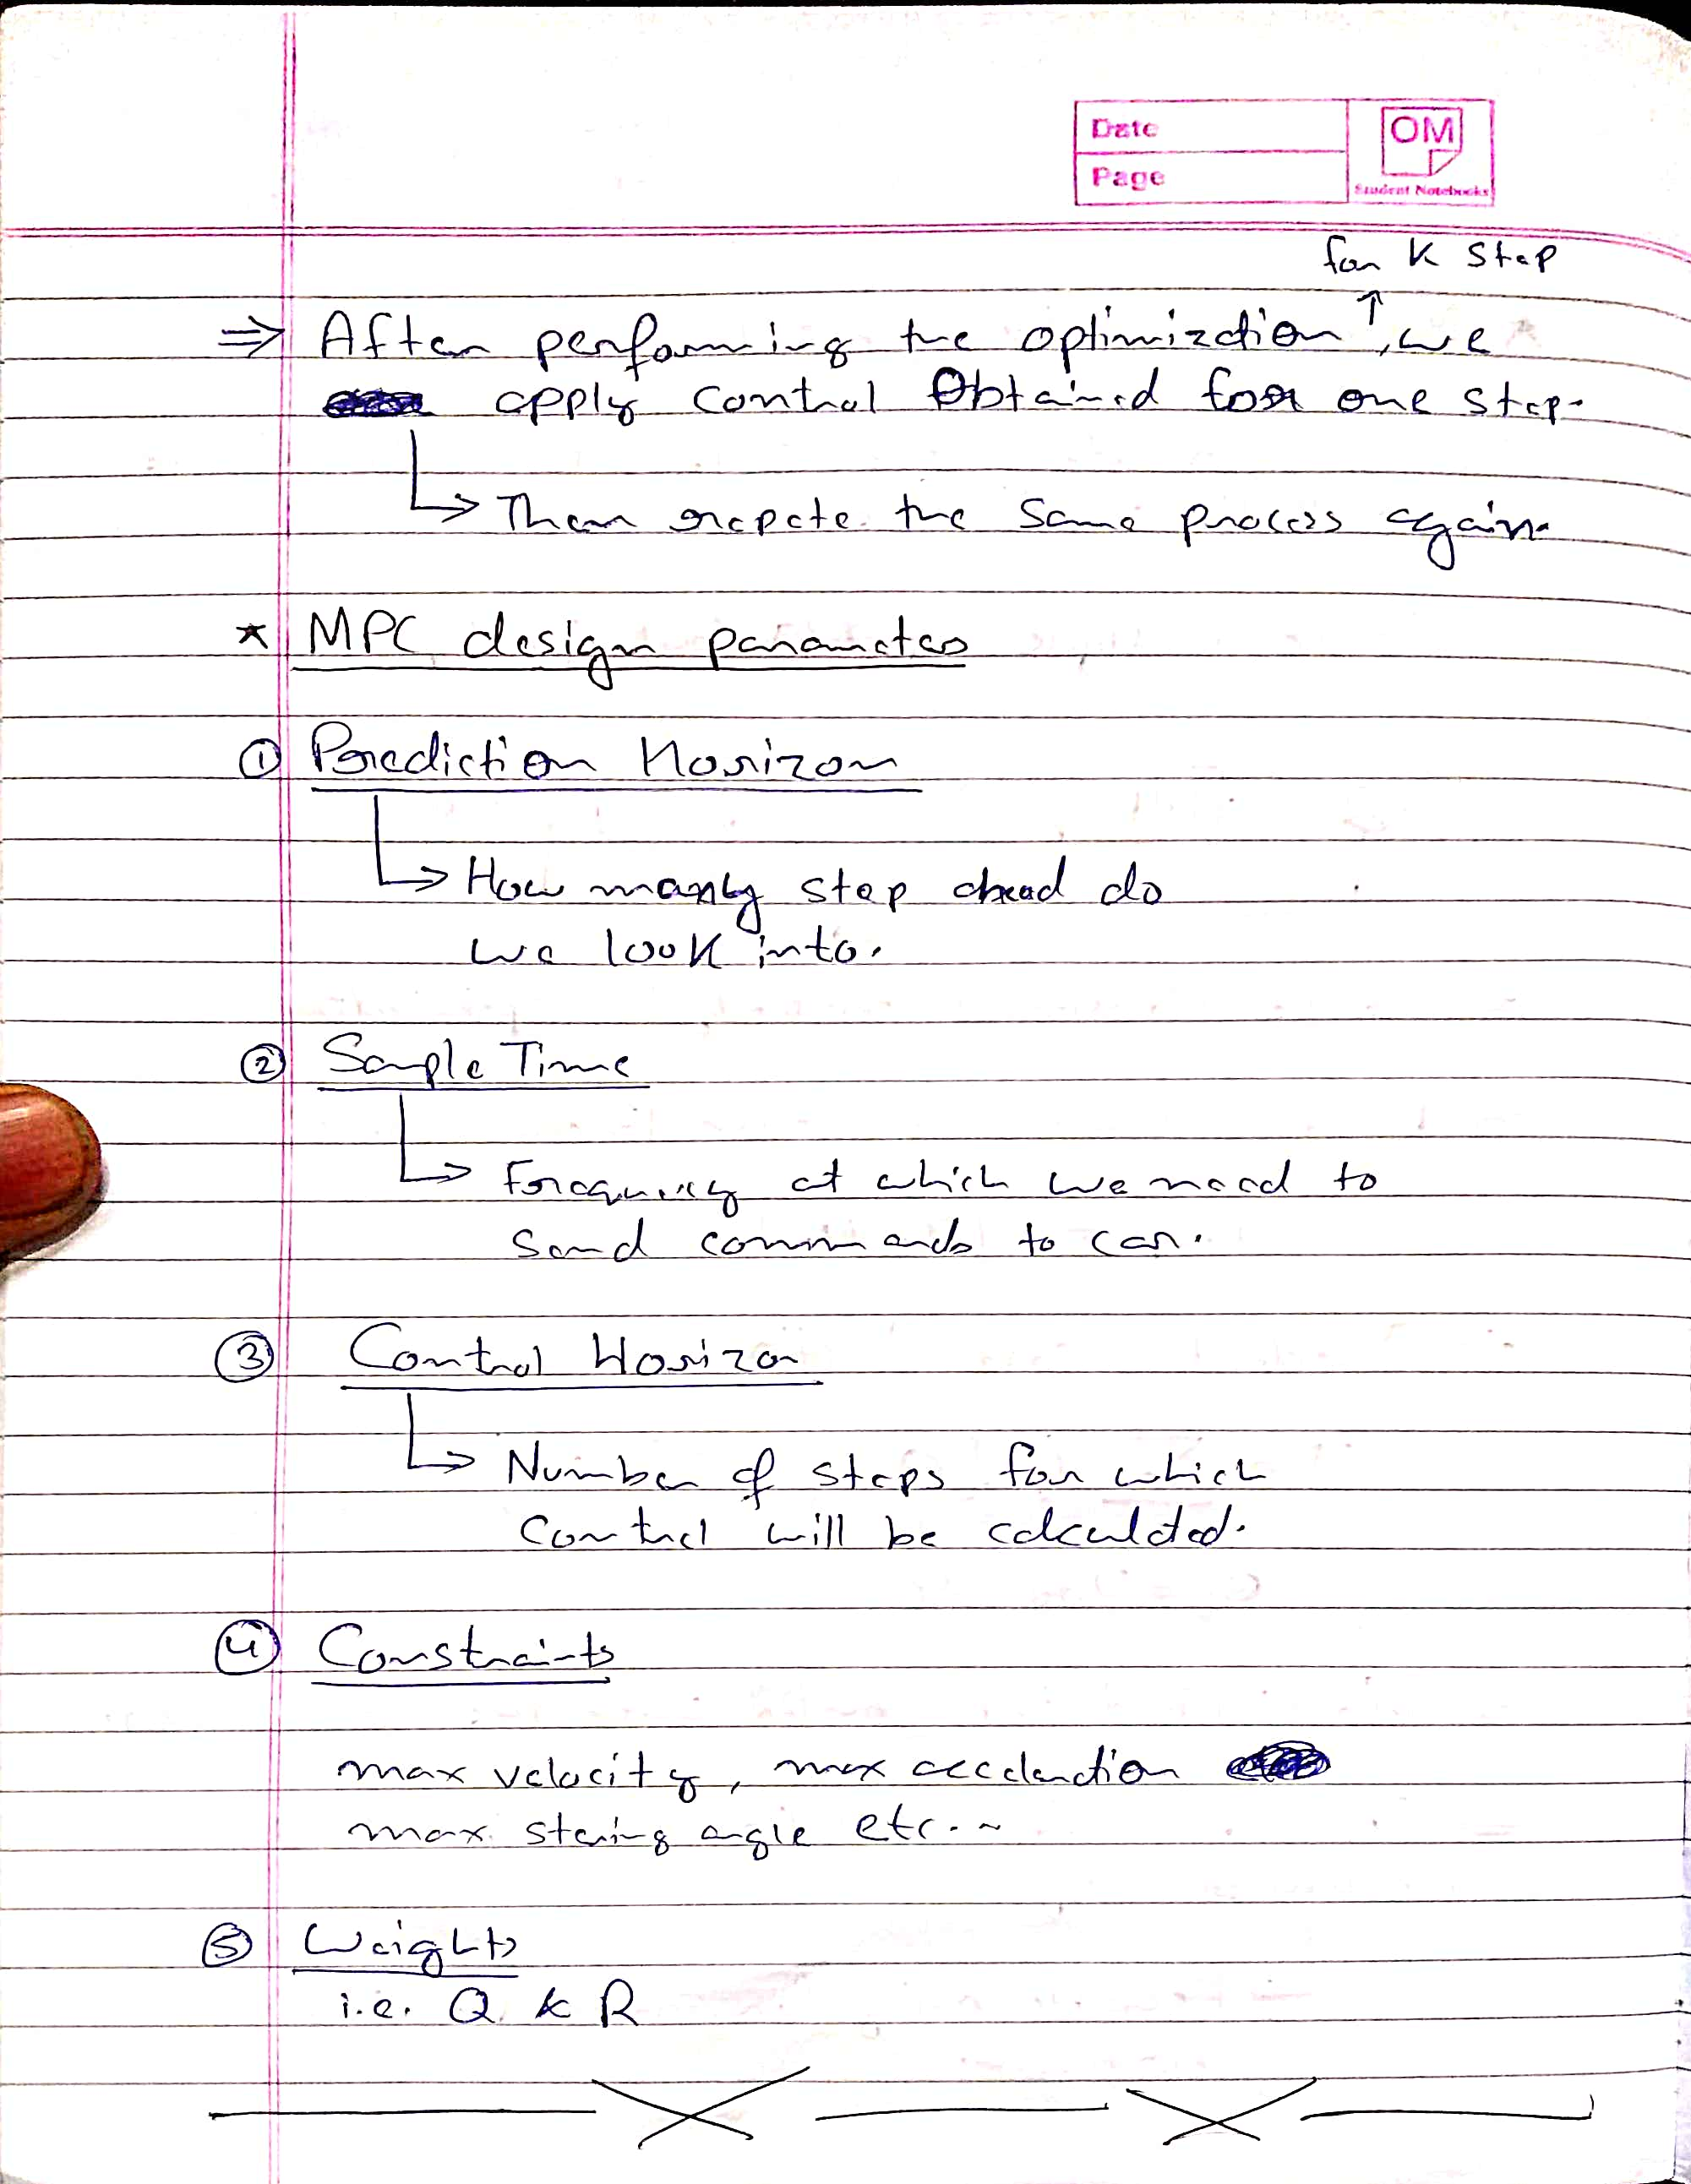 Date
Page
OM
Student Notebooks
for K step
↑
⇒ After performing the optimization, we
apply control Obtained for one step.
↳ Then repete the same process again.
* MPC design parametes
① Prediction Horizon
↳ How many step ahead do
we look into.
② Sample Time
↳ Frequency at which we need to
send commands to car.
③ Control Horizon
↳ Number of steps for which
control will be calculated.
④ Constraints
max velocity, max acceleration
max stering angle etc..
⑤ Weights
i.e. Q & R